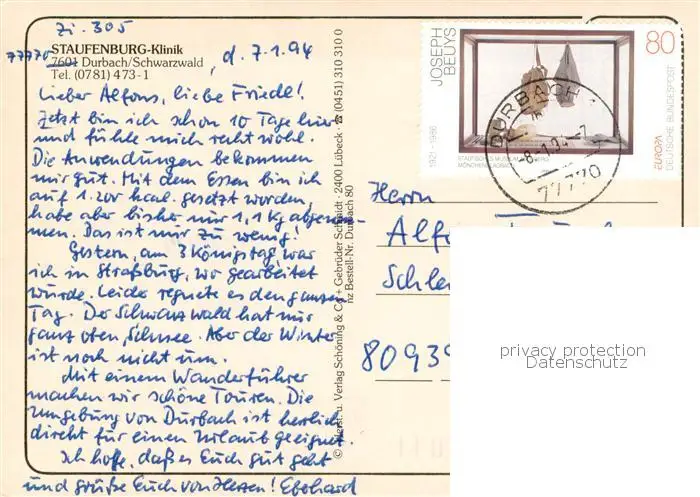 Zi. 305
77770
STAUFENBURG-Klinik
7601 Durbach/Schwarzwald
Tel. (0781) 473-1
d. 7.1.94
Lieber Alfons, liebe Friedl!
Jetzt bin ich schon 10 Tage hier
und fühle mich recht wohl.
Die Anwendungen bekommen
mir gut. Mit dem Essen bin ich
auf 1.200 kcal. gesetzt worden,
habe aber bisher nur 1,1 kg abgenom-
men. Das ist mir zu wenig!
Gestern, am 3 Königstag, war
ich in Straßburg, wo gearbeitet
wurde. Leider regnete es den ganzen
Tag. Der Schwarzwald hat nur
ganz oben Schnee. Aber der Winter
ist noch nicht um.
Mit einem Wanderführer
machen wir schöne Touren. Die
Umgebung von Durbach ist herrlich,
direkt für einen Urlaub geeignet.
Ich hoffe, daß es Euch gut geht
und grüße Euch von Herzen! Eberhard
© Herst. u. Verlag Schöning & Co + Gebrüder Schmidt · 2400 Lübeck · ☎ (0451) 310 310 0
nz Bestell-Nr. Durbach 80
JOSEPH
BEUYS
1921-1986
80
STÄDTISCHES MUSEUM
MÖNCHENGLADBACH
EUROPA
DEUTSCHE BUNDESPOST
DURBACH
-8.-1.94-7
77770
Herrn
Alfo
Schle
80939
privacy protection
Datenschutz